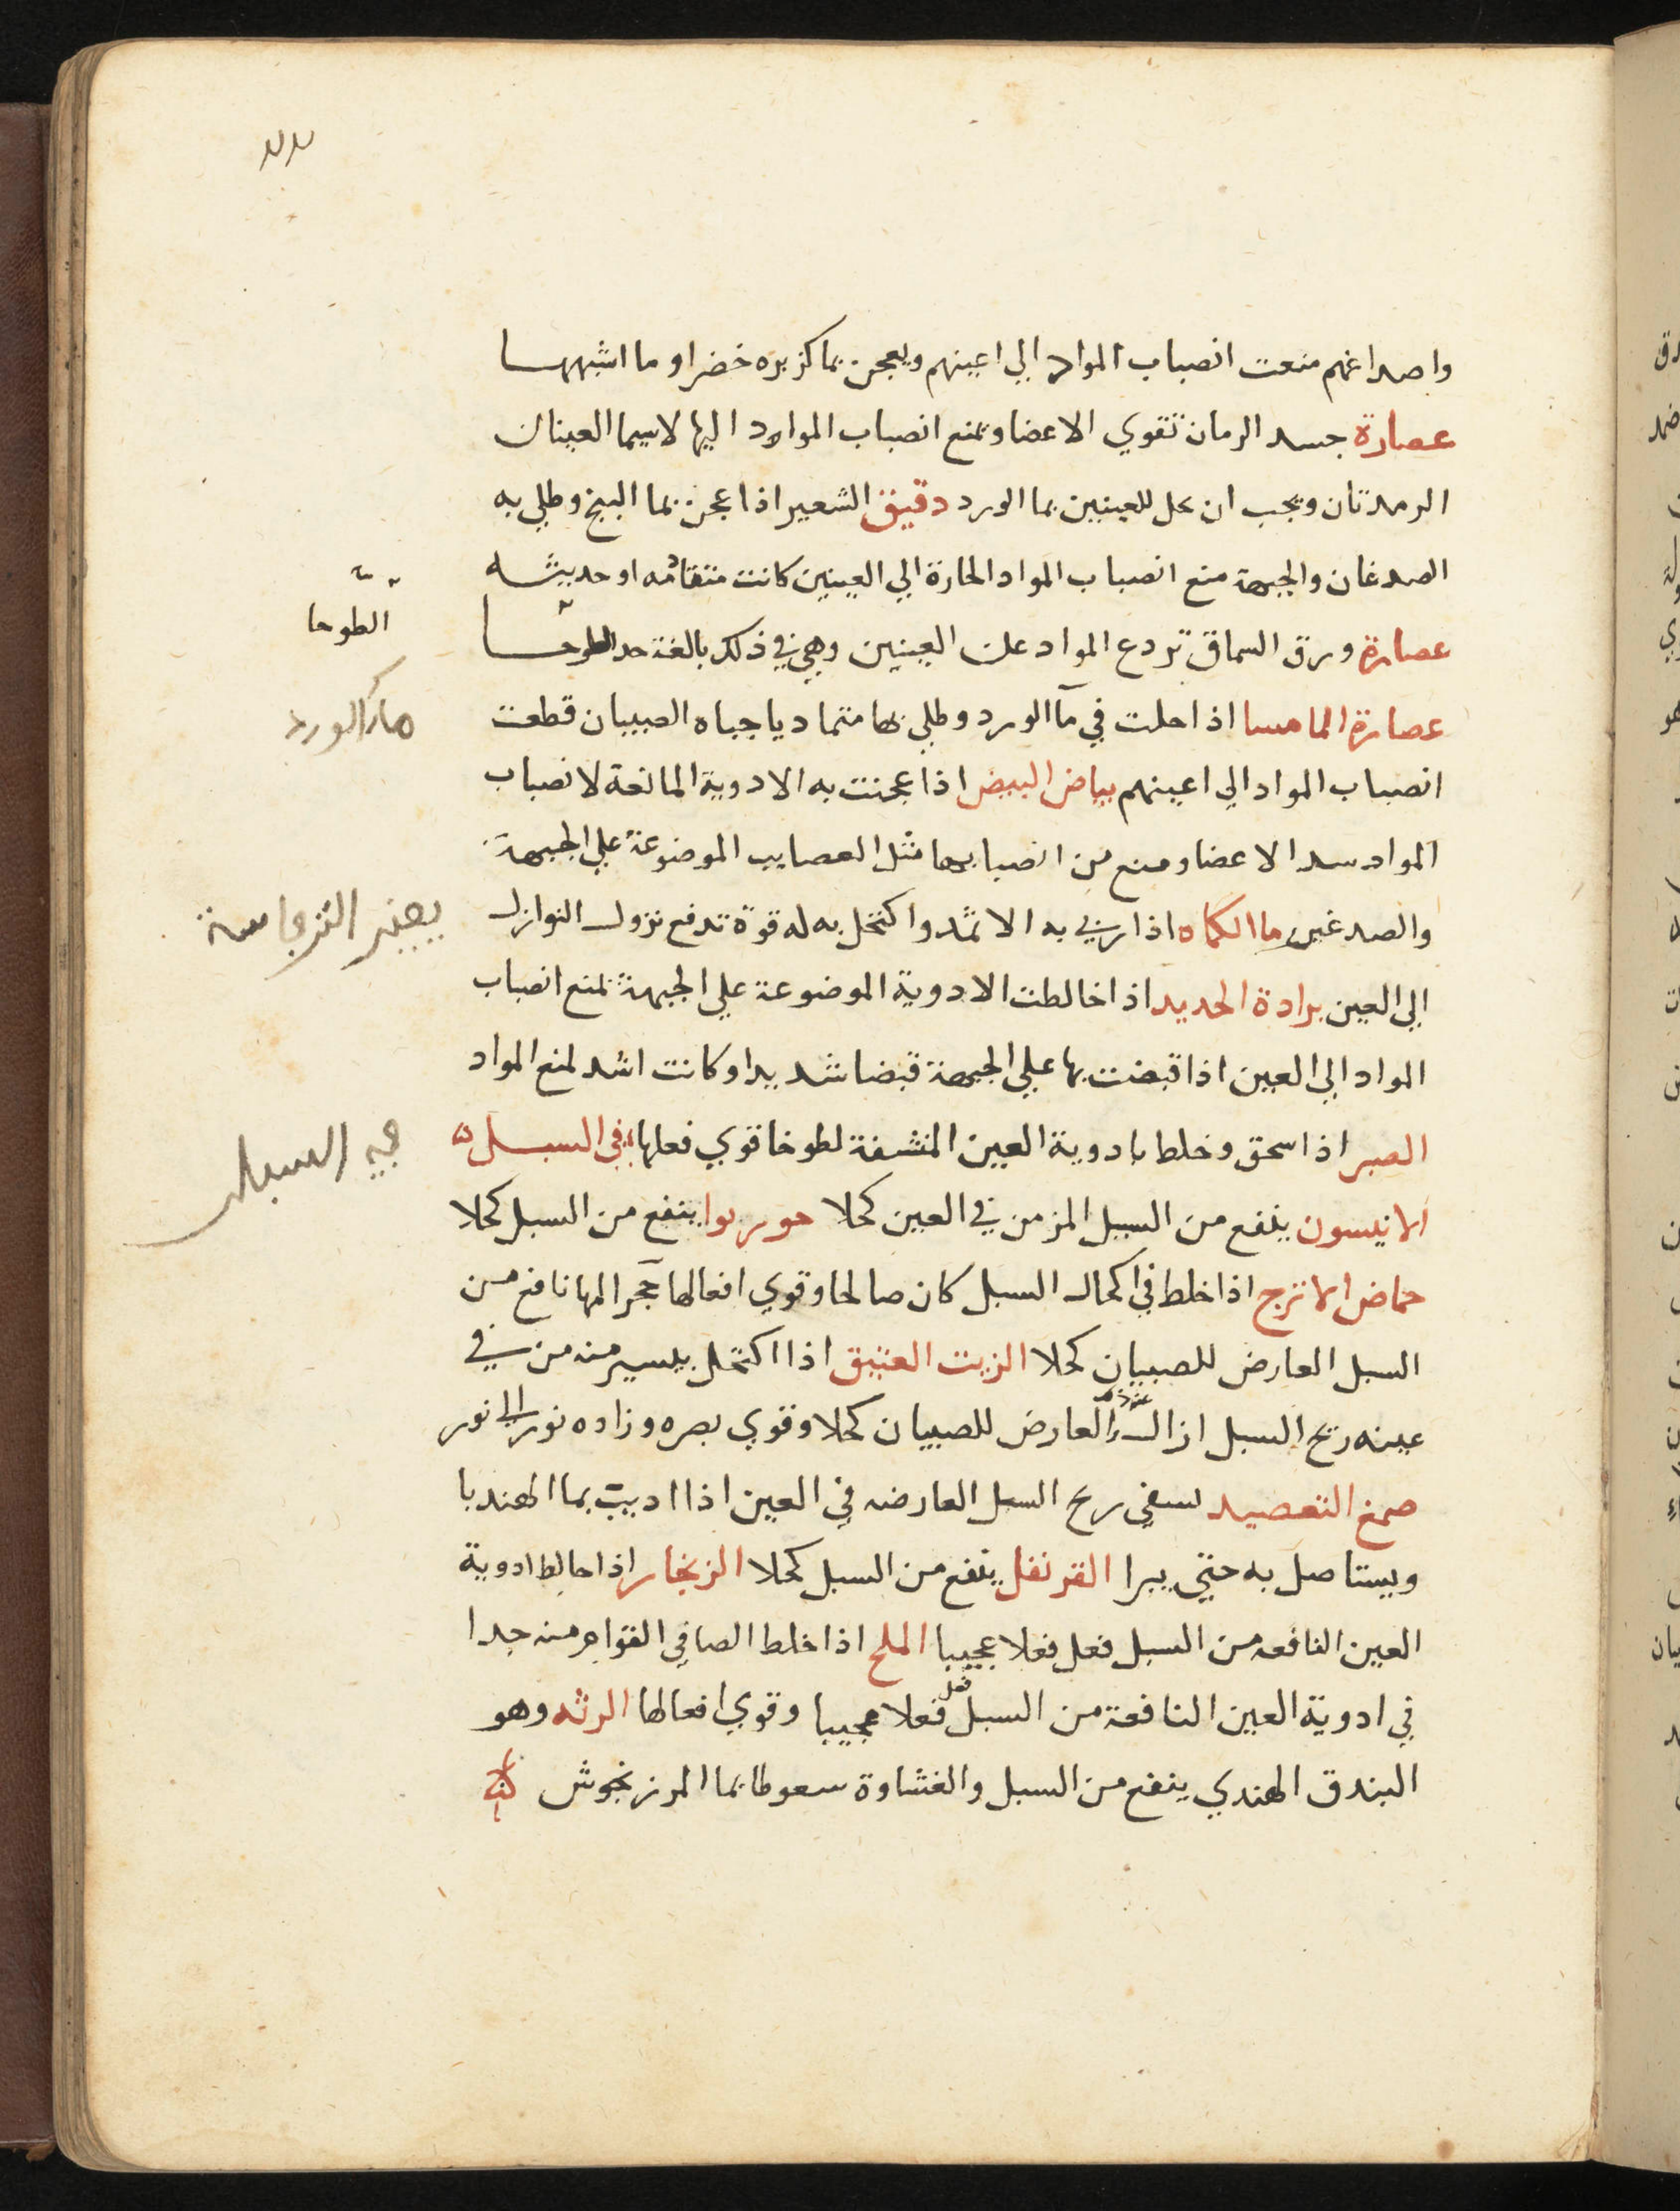 واصداغهم منعت انصباب المواد الي اعينهم ويعجن بما كزبره خضرا وما اشبهها
عصارة جسد الرمان تقوي الاعضا وتمنع انصباب المواد اليها لاسيما العينان
الرمدتان ويجب ان تحل للعينين بما الورد دقيق الشعير اذا عجن بما البنج وطلي به
الصدغان والجبهة منع انصباب المواد الحارة الي العينين كانت متقادمه او حديثه
عصارة ورق السماق تردع المواد عن العينين وهي في ذلك بالغة جدا لطوخا
عصارة المامسا اذا حلت في مآ الورد وطلي بها متماديا جباه الصبيان قطعت
انصباب المواد الي اعينهم بياض البيض اذا عجنت به الادوية المانعة لانصباب
المواد سد الاعضا ومنع من انصبابها مثل العصايب الموضوعة علي الجبهة
والصدغين ما الكماه اذا ربي به الاثمد واكتحل به له قوة تدفع نزول النوازل
الي العين برادة الحديد اذا خالطت الادوية الموضوعة علي الجبهة تمنع انصباب
المواد الي العين اذا قبضت بها علي الجبهة قبضا شديدا وكانت اشد لمنع المواد
الصبر اذا سحق وخلط بادوية العين المنشفة لطوخا قوي فعلها في السبل
الانيسون ينفع من السبل المزمن في العين كحلا جوربوا ينفع من السبل كحلا
حماض الاترج اذا خلط في اكحال السبل كان صالحا وقوي افعالها حجر المها نافع من
السبل العارض للصبيان كحلا الزيت العتيق اذا اكتحل بيسير منه من في
عينه ريح السبل ازال العارض للصبيان كحلا وقوي بصره وزاده نور الي نور
صمغ ريح السبل العارضه في العين اذا اديب بما الهندبا
ويستاصل به حتي يبرا القرنفل ينفع من السبل كحلا الزنجار اذا خالط ادوية
العين النافعه من السبل فعل فعلا عجيبا الملح اذا خلط الصافي منه جدا
في ادوية العين النافعة من السبل فعل فعلا عجيبا وقوي افعالها الرته وهو
البندق الهندي ينفع من السبل والغشاوة سعوطا بما المرزنجوش
الطوحا
ماء الورد
في السبل